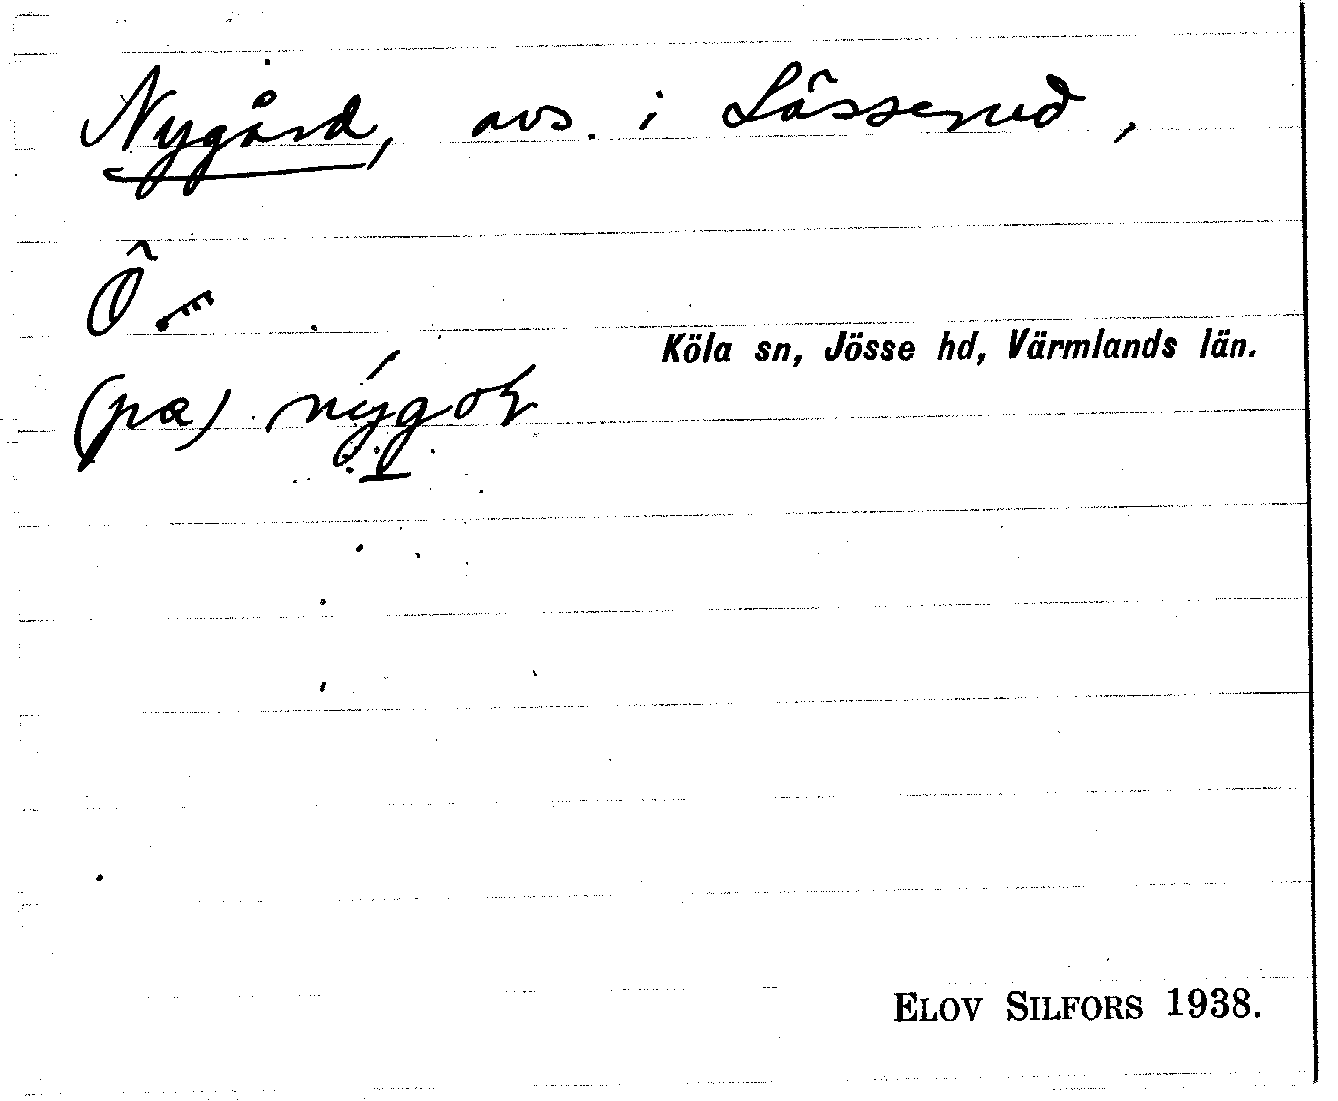 Nygård, avs. i Lässerud,
Ô
Köla sn, Jösse hd, Värmlands län.
(pa)
ELOV SILFORS 1938.